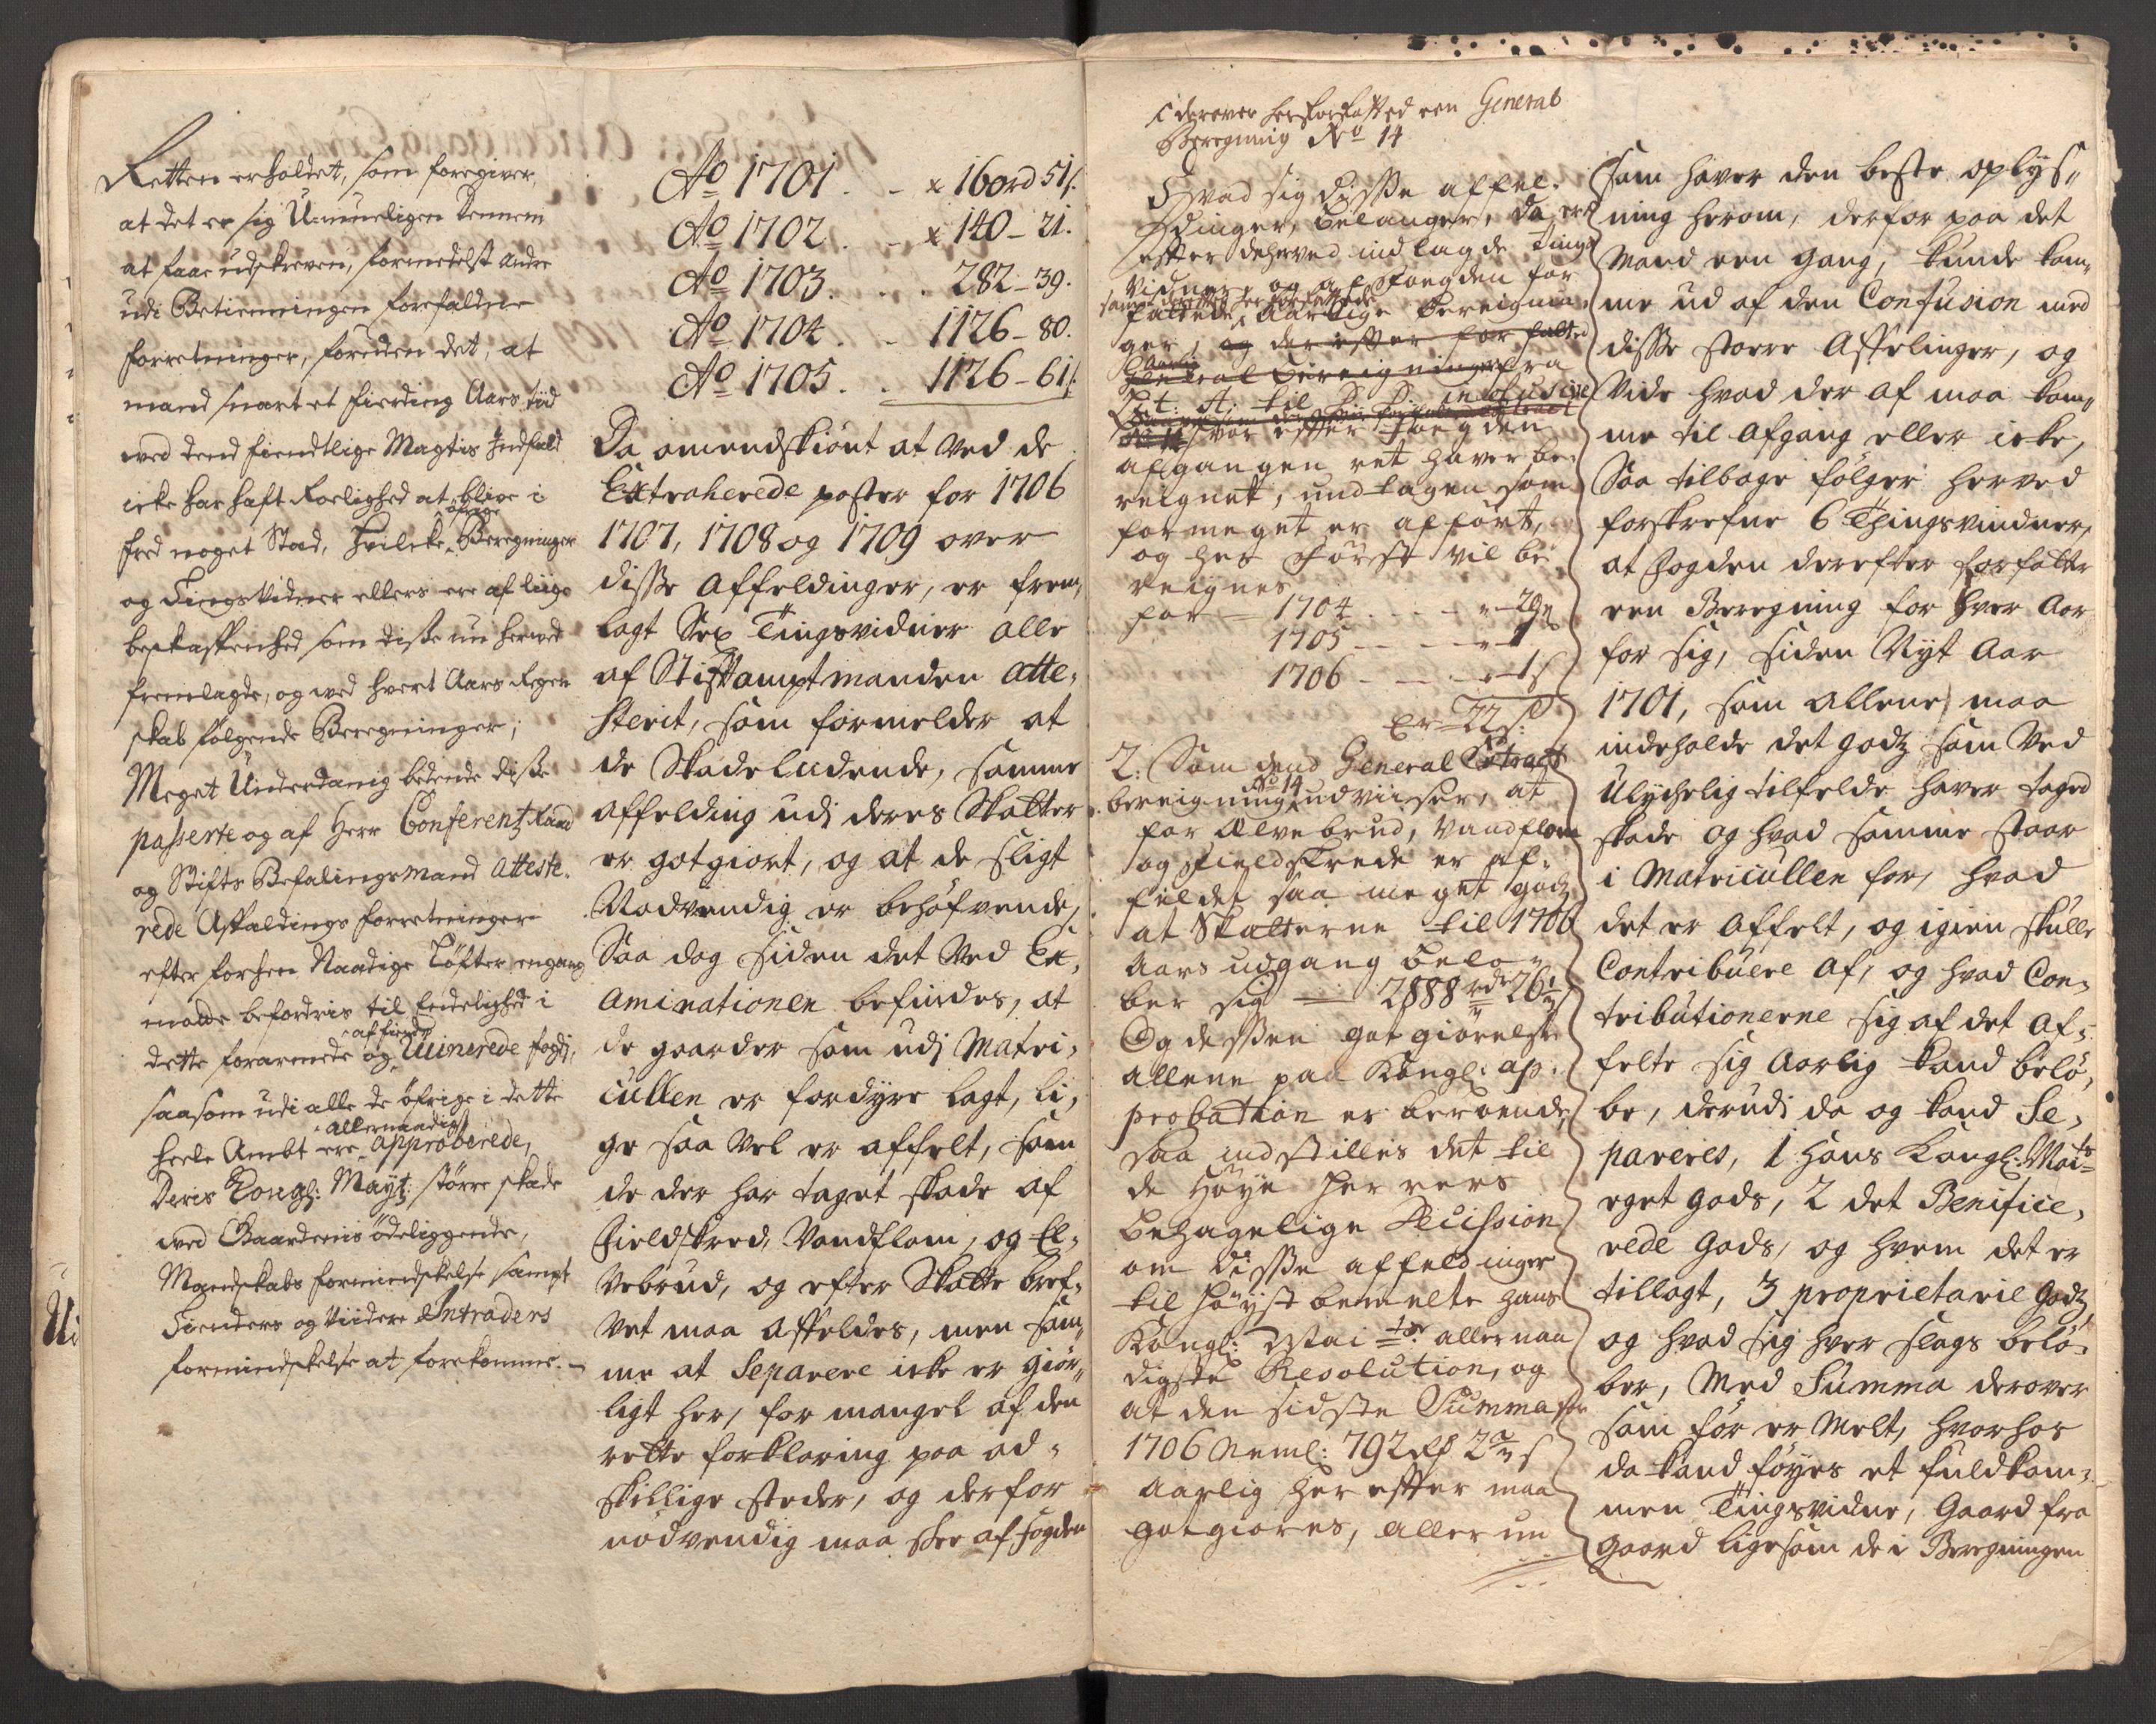 Retten erholdet, som foregiver,
at det er sig Umueligen Dennem
at faae udskreven, formedelst andre
udi Betienningen forefaldne
forretninger, foruden det, at
mand snart et fierding Aars tiid
ved dend fiendtlige Magtis Indfald
icke har haft Roelighed at blive i
fred noget Stæd, Hvilcke øfrige Beregninger
og Tingsvidner ellers ere af liige
beskaffenhed som disse nu herved
fremlagde, og ved hvert Aars Regen
skab følgende Beregninger;
Meget Underdanig bedende disse
passerte og af Herr Conferentz Raad
og Stifts Befalingsmand Atteste-
rede Affældings forretninger
efter forhen Naadige Løfter engang
motte befordris til Endelighed i
dette forarmede og af fienden Ruinerede fogd:
saasom udi alle de øfrige i dette
heele Ambt ere allernaadigst approberede,
Deris Kongl: Mayt: større skade
ved Gaardenis ødeliggende,
Mandskabs formindskelse sampt
Tienders og Viidere Intraders
formindskelse at forekomme.
Ao 1701 . - x 160rd 51s.
Ao 1702 . - x 140 - 21.
Ao 1703 . . . 282 - 39.
Ao 1704 . - 1126 - 80.
Ao 1705 . . 1126 - 61s.
Da omendskiønt at ved de
Extraherede poster for 1706
1707, 1708 og 1709 over
disse Affeldinger, er frem,,
lagt Sex Tingsvidner alle
af Stiftamptmanden atte,
sterit, som formelder at
de Skadelidende, samme
affelding udj deres Skatter
er gotgiort, og at de sligt
Nødvendig er behøfvende,
Saa dog siden det ved Ex,
aminationen befindes, at
de gaarder som udj Matri,
cullen er fordyre lagt, li,
ge saa vel er affelt, som
de der har taget skade af
Fieldskred, Vandflom, og El,
vebrud, og efter Skatte bref,
vet maa Affeldes, men sam,,
me at Separere icke er giør,,
ligt her, for mangel af den
rette forklaring paa ad,
skillige steder, og derfor
nødvendig maa skee af fogden
derover her forfatted een General
Beregning No 14
Hvad sig disse affel-
dinger, belanger, da er
efter dehrved indlagde Tings
Vidner, og af Foegden for
fattede, Aarlige bereignin
ger, og derefter for fatted
General bereigninger fra
Lit: A, til inclusive
svor efter Foegden
afgangen ret haver be-
reignet, undtagen som
formeget er affört,
og her först vil be
reignes
for - 1704 . . .
1705 - - -
1706 - - - 1s
Er 22s:
2: Som dend General Extract
bereigning No 14 udviiser, at
for Elvebrud, Vandflom
og Fieldskrede er af-
feldet saa meget godz
at Skatterne til 1706
Aars udgang belö-
ber sig - 2888 rdr 26
Og dessen gotgiörelse
allene paa Kongl: ap-
probation er beroende
saa indstilles det til
de Höye herrers
behagelige Decission
om disse affeldinger
til höyst bemelte hans
Kongl: Mai ts allernaa
digste Resolution, og
at den sidste Summa for
1706 Neml: 792 Rdr 2 s
Aarlig her efter maa
gotgiöres, aller un
som haver den beste oplys,,
ning herom, derfor paa det
mand een gang, kunde kom,,
me ud af den Confusion med
disse store Affelinger, og
Vide hvad der af maa kom,,
me til Afgang eller icke,
Saa tilbage følger herved
forskrefne 6 Thingsvindner,
at Fogden derefter forfatter
een Beregning for hver Aar
for sig, siden Nyt Aar
1701, som allene maa
indeholde det godz som ved
Ulychelig tilfelde haver taged
skade og hvad samme staar
i Matricullen for, hvad
det er affelt, og igien skulle
Contribuere af, og hvad Con,
tributionerne sig af det Af-
felte sig Aarlig kand belø,
be, derudj da og kand Se,
pareres, 1 Hans Kongl: Mai ts
eget gods, 2 det Benifice,
rede gods, og hvem det er
tillagt, 3 proprietarie godz,
og hvad sig hver slags belø-
ber, Med Summa derover
som før er melt, hvorhos
da kand føyes et fuldkom-
men Tingsvidne, Gaard fra
Gaard ligesom de i Beregningen